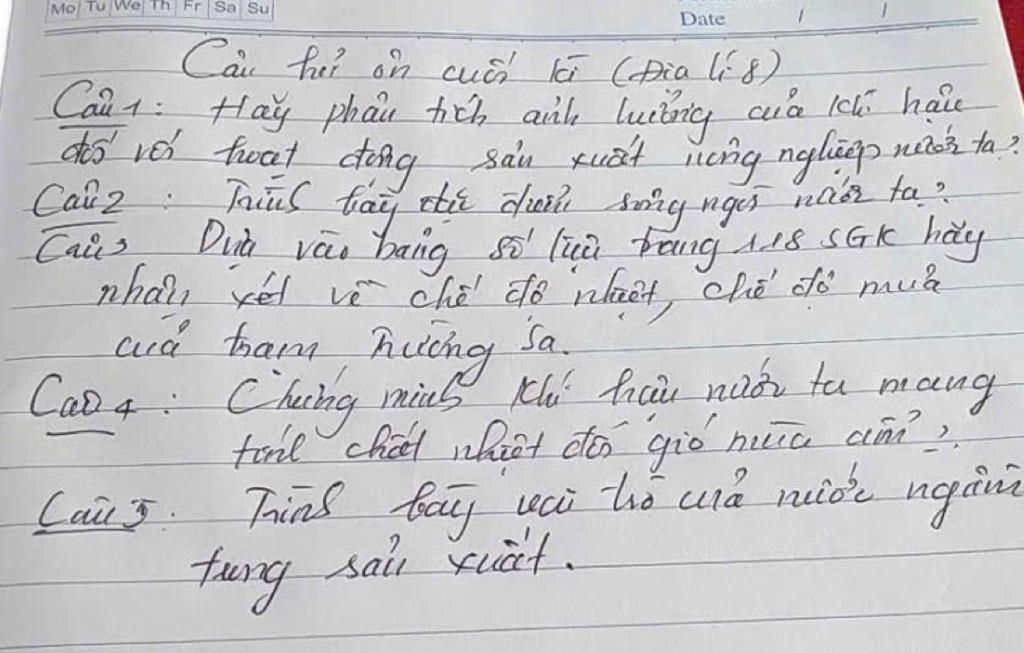 Mo Tu We Th Fr Sa Su
Date / /
Câu hỏi ôn cuối kì (Địa lí 8)
Câu 1: Hãy phân tích ảnh hưởng của khí hậu
đối với hoạt động sản xuất nông nghiệp nước ta?
Câu 2: Trình bày đặc điểm sông ngòi nước ta?
Câu 3 Dựa vào bảng số liệu trang 118 SGK hãy
nhận xét về chế độ nhiệt, chế độ mưa
của trạm Trường Sa.
Câu 4: Chứng minh khí hậu nước ta mang
tính chất nhiệt đới gió mùa ẩm?
Câu 5. Trình bày vai trò của nước ngầm
trong sản xuất.